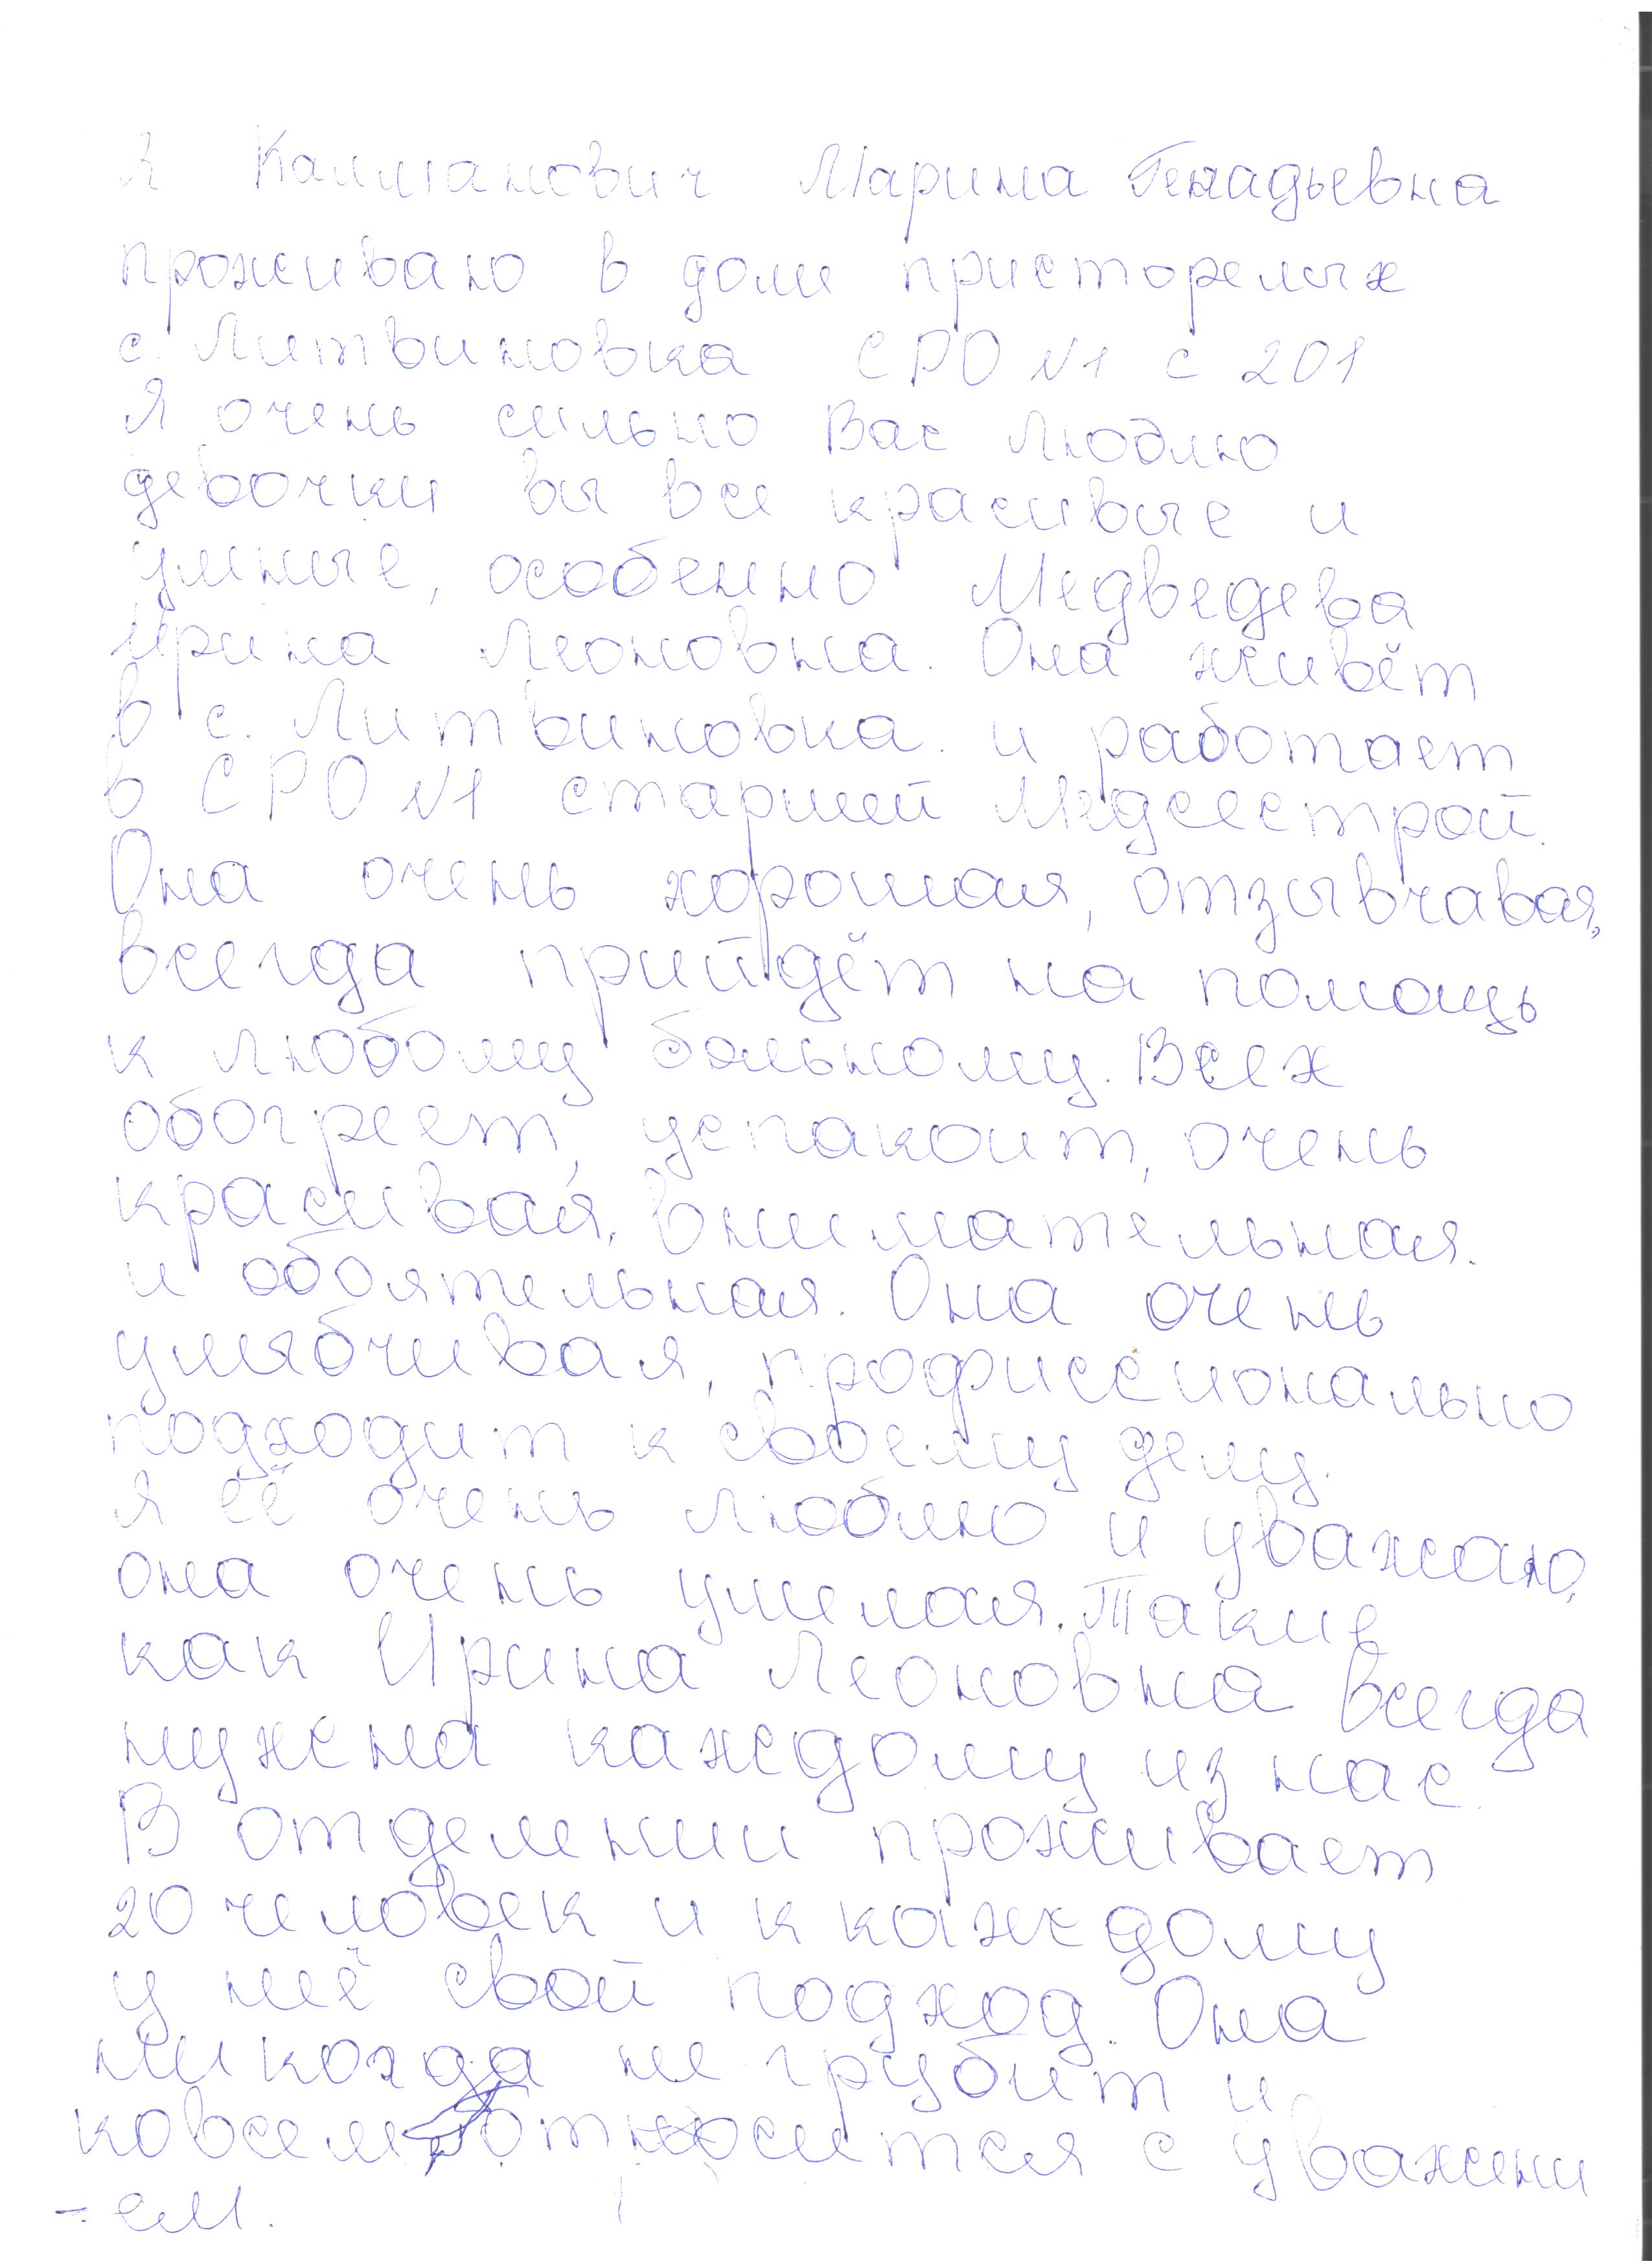 Я Калманович Марина Генадьевна
проживаю в доме присторелых
с. Литвиновка СРО №1 с 201
Я очень сильно Вас люблю
девочки вы все красивые и
умные, особенно Медведева
Ирина Леоновна. Она живёт
в с. Литвиновка. и работает
в СРО №1 старшей Медсестрой.
Она очень хорошая, отзывчавая,
всегда прийдёт на помощь
к любому больному. Всех
обогреет, успакоит, очень
красивая, внимательная.
и обоятельная. Она очень
улябчивая, профиссионально
подходит к своему делу.
Я её очень люблю и уважаю,
она очень умелая. Такие
как Ирина Леоновна всегда
нужна каждому из нас.
В отделении проживает
20 человек и к каждому
у неё свой подход. Она
никогда не грубит и
ковсем относится с уважени
-ем.